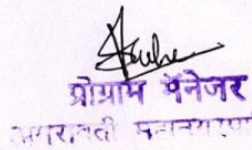 प्रोग्राम मॅनेजर
अमरावती महानगरपा